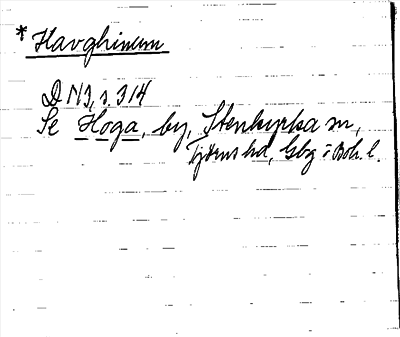 * Havghinum
D N3, s. 314
Se Hoga, by, Stenkyrka sn,
Tjörns hd, Gbg i Boh. l.